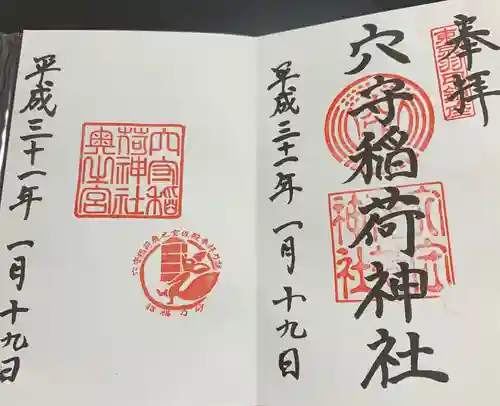 奉拝
東京羽田鎮座
穴守稲荷神社
穴守
神社
平成三十一年 一月 十九日
穴守稲
荷神社
奥之宮
招福乃砂
平成三十一年 一月 十九日